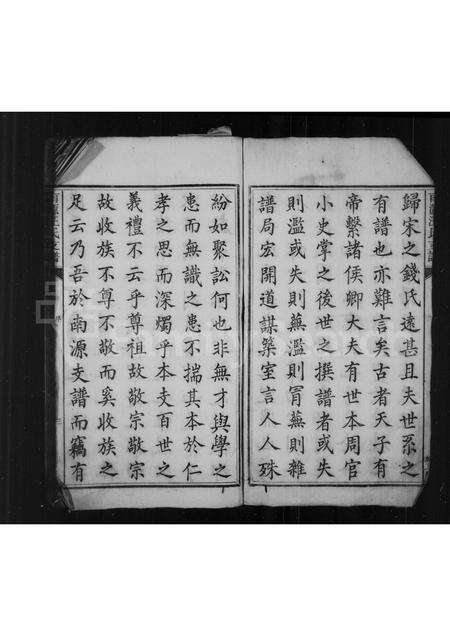 歸宋之錢氏遠甚且夫世系之
有譜也亦難言矣古者天子有
帝繫諸侯卿大夫有世本周官
小史掌之後世之撰譜者或失
則濫或失則蕪濫則冒蕪則雜
譜局宏開道謀築室言人人殊
紛如聚訟何也非無才與學之
患而無識之患不揣其本於仁
孝之思而深燭乎本支百世之
義禮不云乎尊祖故敬宗敬宗
故收族不尊不敬而奚收族之
足云乃吾於南源支譜而竊有